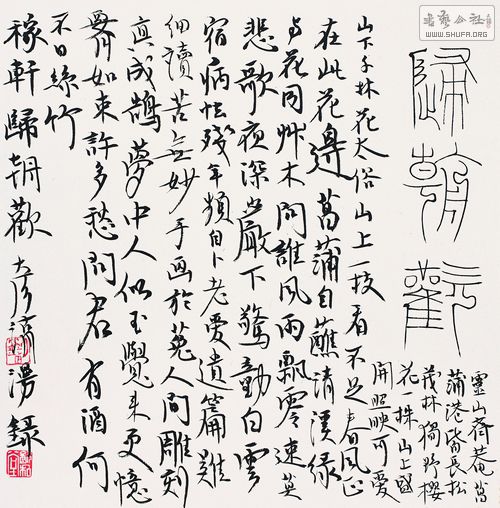 歸朝歡
靈山齊菴菖
蒲港皆長松
茂林獨野櫻
花一株山上盛
開照映可愛
山下千林花太俗山上一枝看不足春風正
在此花邊菖蒲自蘸清溪緑
与花同艸木問誰風雨飄零速莫
悲歌夜深岩下驚動白雲
宿病怯殘年頻自卜老愛遺篇難
細讀苦無妙手画於菟人間雕刻
真成鵠夢中人似玉覺來更憶
腰如束許多愁問君有酒何
不日絲竹
稼軒歸朝歡
書法公社
WWW.SHUFA.ORG